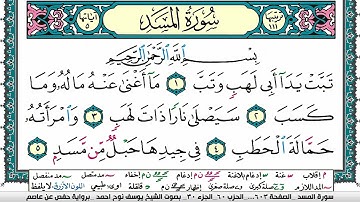 ترتيبها ١١١
سورة المسد
آياتها ٥
بِسْمِ ٱللَّهِ ٱلرَّحْمَٰنِ ٱلرَّحِيمِ
تَبَّتْ يَدَآ أَبِى لَهَبٍ وَتَبَّ ١ مَآ أَغْنَىٰ عَنْهُ مَالُهُۥ وَمَا
كَسَبَ ٢ سَيَصْلَىٰ نَارًا ذَاتَ لَهَبٍ ٣ وَٱمْرَأَتُهُۥ
حَمَّالَةَ ٱلْحَطَبِ ٤ فِى جِيدِهَا حَبْلٌ مِّن مَّسَدٍۭ ٥
سورة المسد الصفحة ٦٠٣ الحزب ٦٠ الجزء ٣٠ بصوت الشيخ يوسف نوح احمد برواية حفص عن عاصم